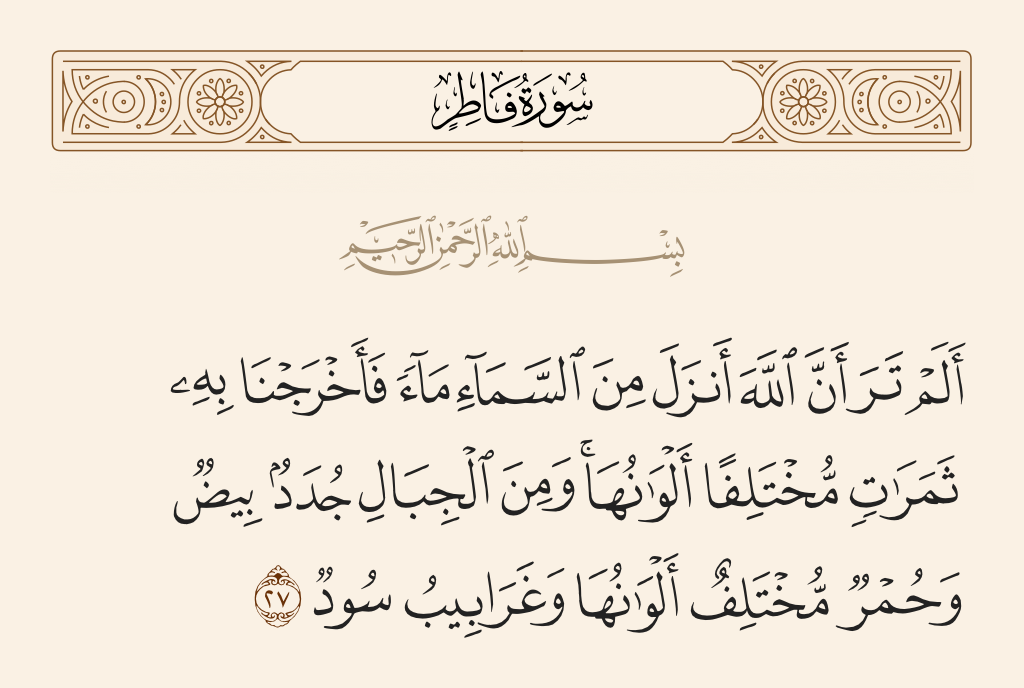 سُورَةُ فَاطِرٍ
بِسْمِ ٱللَّهِ ٱلرَّحْمَٰنِ ٱلرَّحِيمِ
أَلَمْ تَرَ أَنَّ ٱللَّهَ أَنزَلَ مِنَ ٱلسَّمَآءِ مَآءً فَأَخْرَجْنَا بِهِۦ
ثَمَرَٰتٍ مُّخْتَلِفًا أَلْوَٰنُهَا ۚ وَمِنَ ٱلْجِبَالِ جُدَدٌۢ بِيضٌ
وَحُمْرٌ مُّخْتَلِفٌ أَلْوَٰنُهَا وَغَرَابِيبُ سُودٌ ٢٧